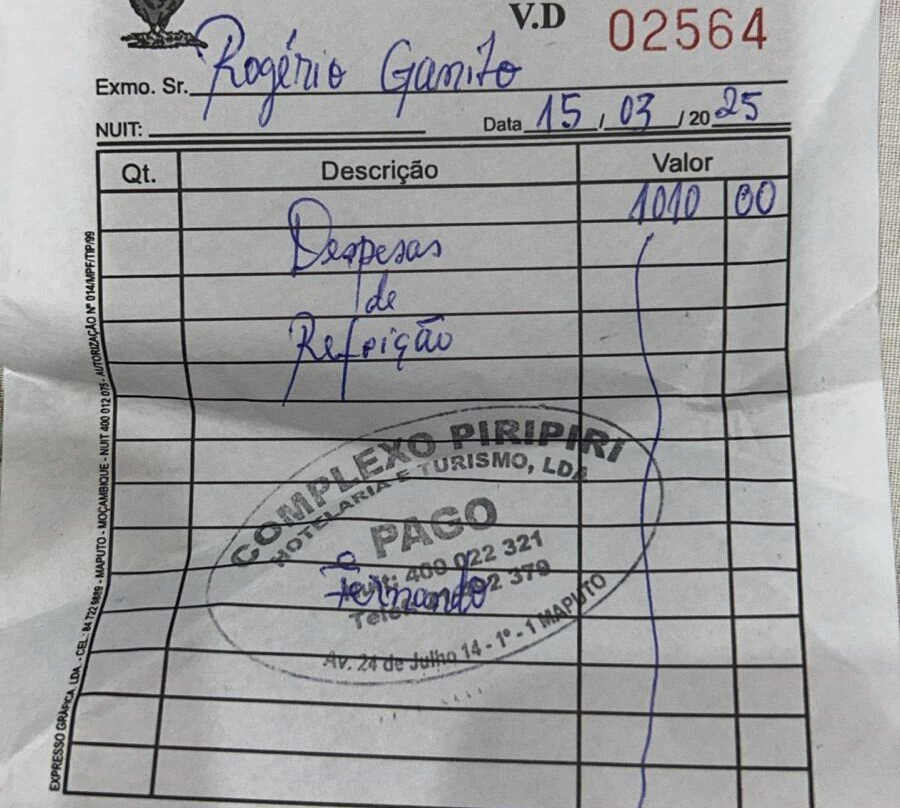 V.D 02564
Exmo. Sr. Rogério Gamito
NUIT:
Data 15 / 03 / 20 25
Qt. Descrição Valor
1010 00
Despesas
de
Refeição
COMPLEXO PIRIPIRI
HOTELARIA E TURISMO, LDA
PAGO
Nuit: 400 022 321
Fernando
2 379
Av. 24 de Julho 14 - 1º - 1 MAPUTO
EXPRESSO GRÁFICA, LDA. - CEL.: 84 722 9889 - MAPUTO - MOÇAMBIQUE - NUIT 400 012 075 - AUTORIZAÇÃO Nº 014/MPF/TIP/99